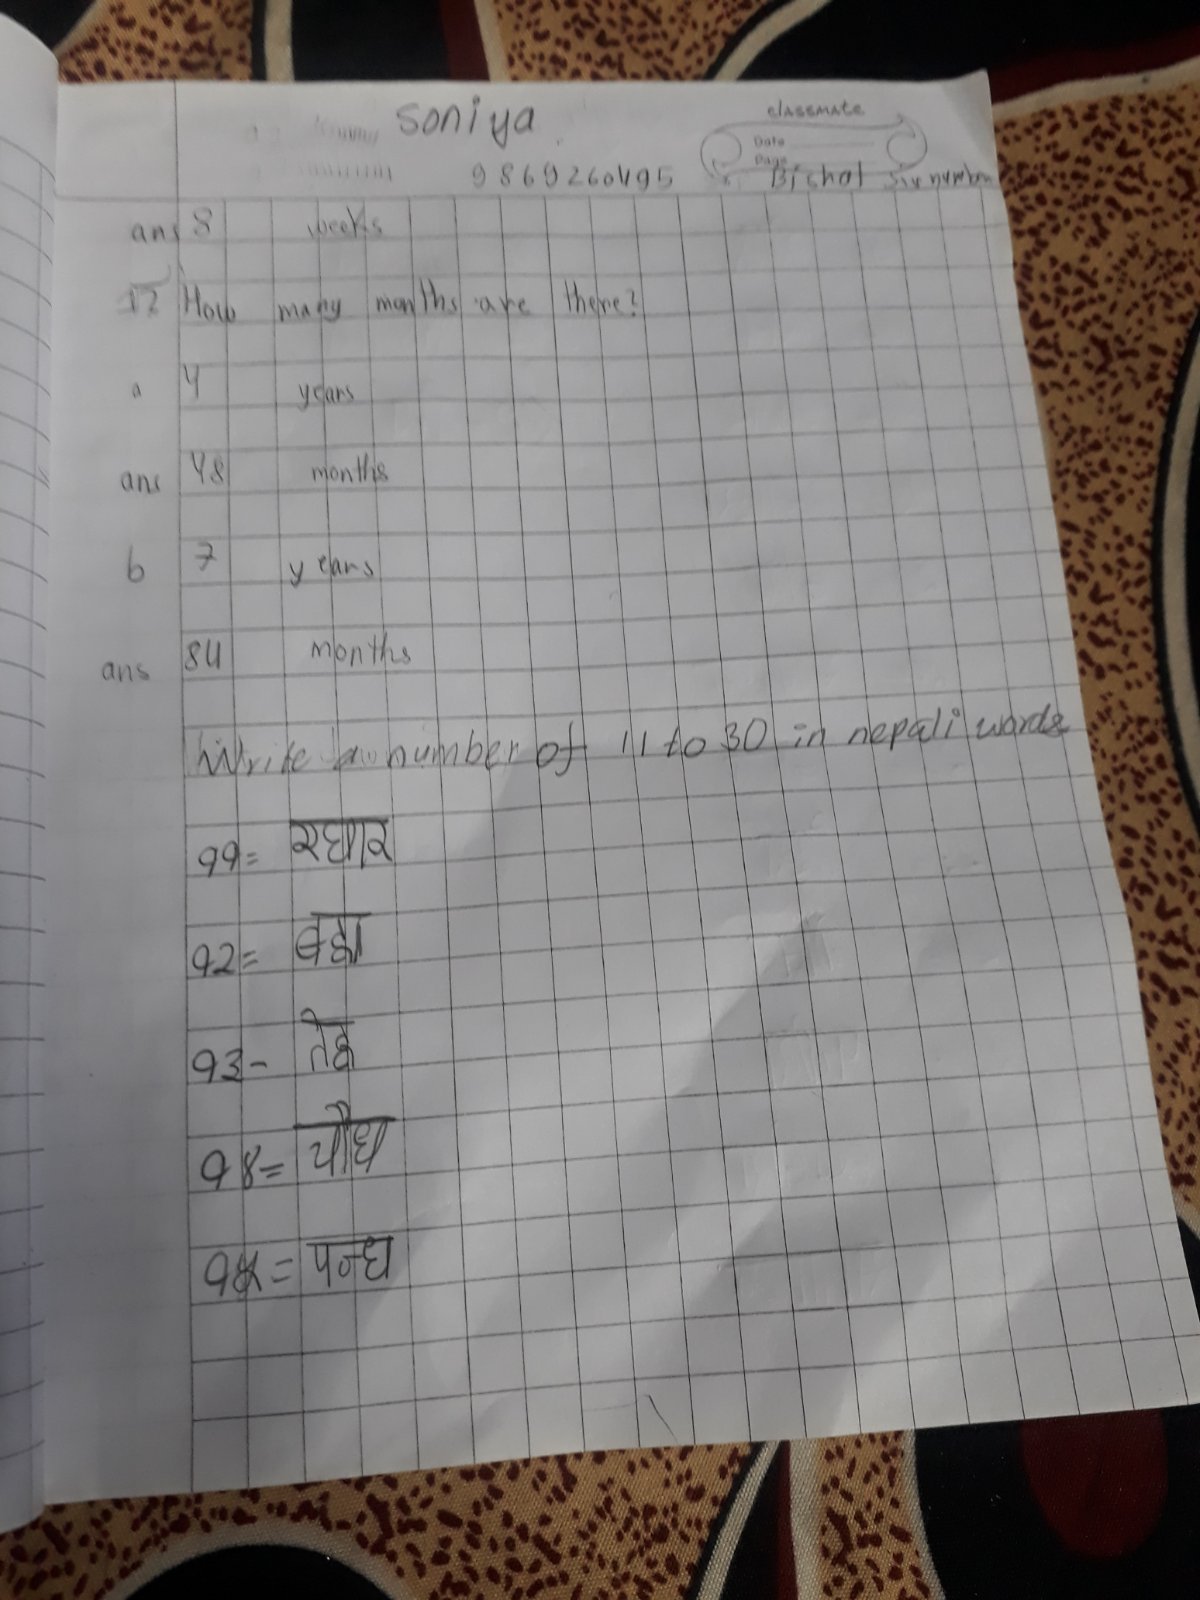 Soniya
classmate
Date
Page
9869260495 Bishal
ans 8 weeks
12 How many months are there?
a 4 years
ans 48 months
b 7 years
ans 84 months
Write a number of 11 to 30 in nepali words
११=
१२=
१३- तेह्र
१४= चौध
१५= पन्ध